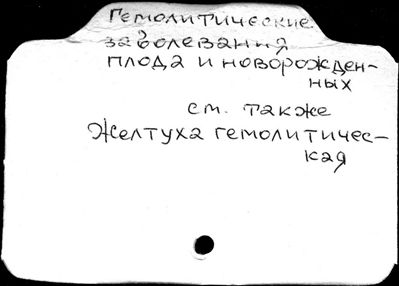 Гемолитические
заболевания
плода и новорожден-
ных
см. также
Желтуха гемолитичес-
кая